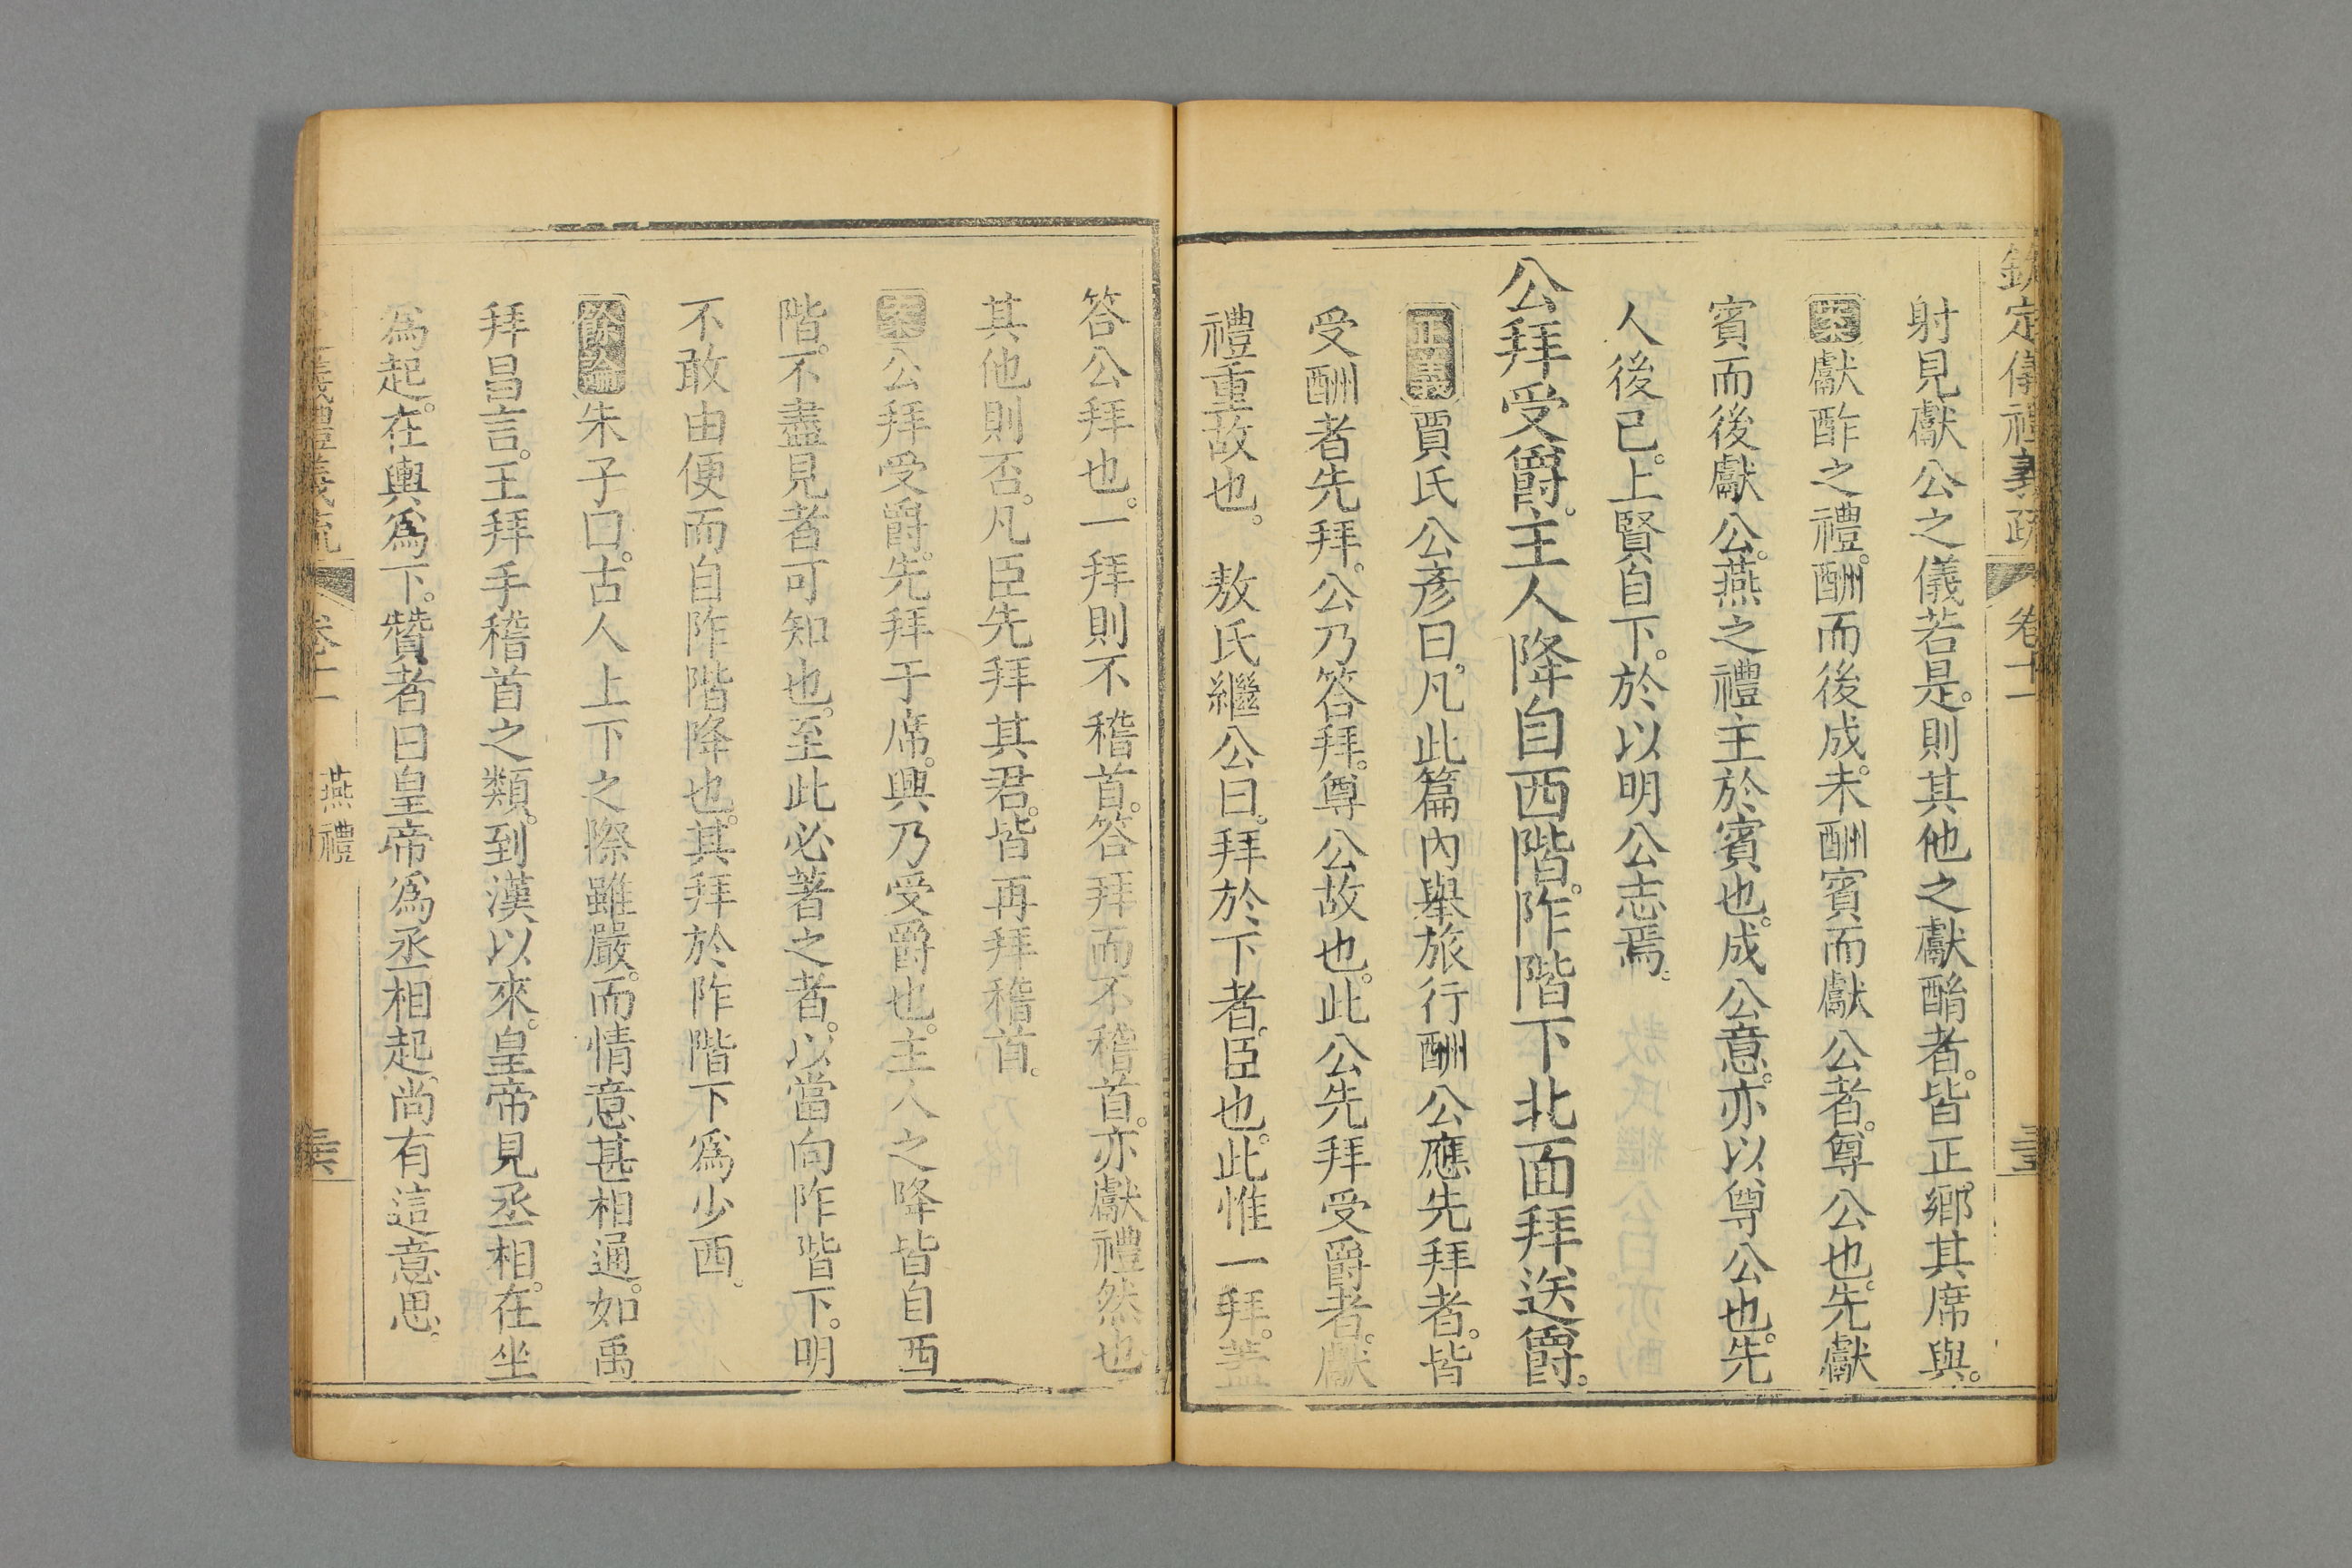 欽定儀禮義疏 卷十一
射見獻公之儀若是。則其他之獻酳者。皆正。鄉其席與。
案獻酢之禮。酬而後成。未酬賓而獻公者。尊公也。先獻
賓而後獻公。燕之禮主於賓也。成公意。亦以尊公也。先
人後己。上賢自下。於以明公志焉。
公拜受爵。主人降自西階。阼階下北面拜送爵。
正義賈氏公彥曰。凡此篇內舉旅行酬。公應先拜者。皆
受酬者先拜。公乃答拜。尊公故也。此公先拜受爵者。獻
禮重故也。 敖氏繼公曰。拜於下者。臣也。此惟一拜。蓋
答公拜也。一拜則不稽首。答拜而不稽首。亦獻禮然也
其他則否。凡臣先拜其君。皆再拜稽首。
案公拜受爵。先拜于席。興乃受爵也。主人之降皆自西
階。不盡見者可知也。至此必著之者。以當向阼階下。明
不敢由便而自阼階降也。其拜於阼階下爲少西。
餘論朱子曰。古人上下之際雖嚴。而情意甚相通。如禹
拜昌言。王拜手稽首之類。到漢以來。皇帝見丞相。在坐
爲起。在輿爲下。贊者曰皇帝爲丞相起。尚有這意思。
儀禮義疏 卷十一 燕禮